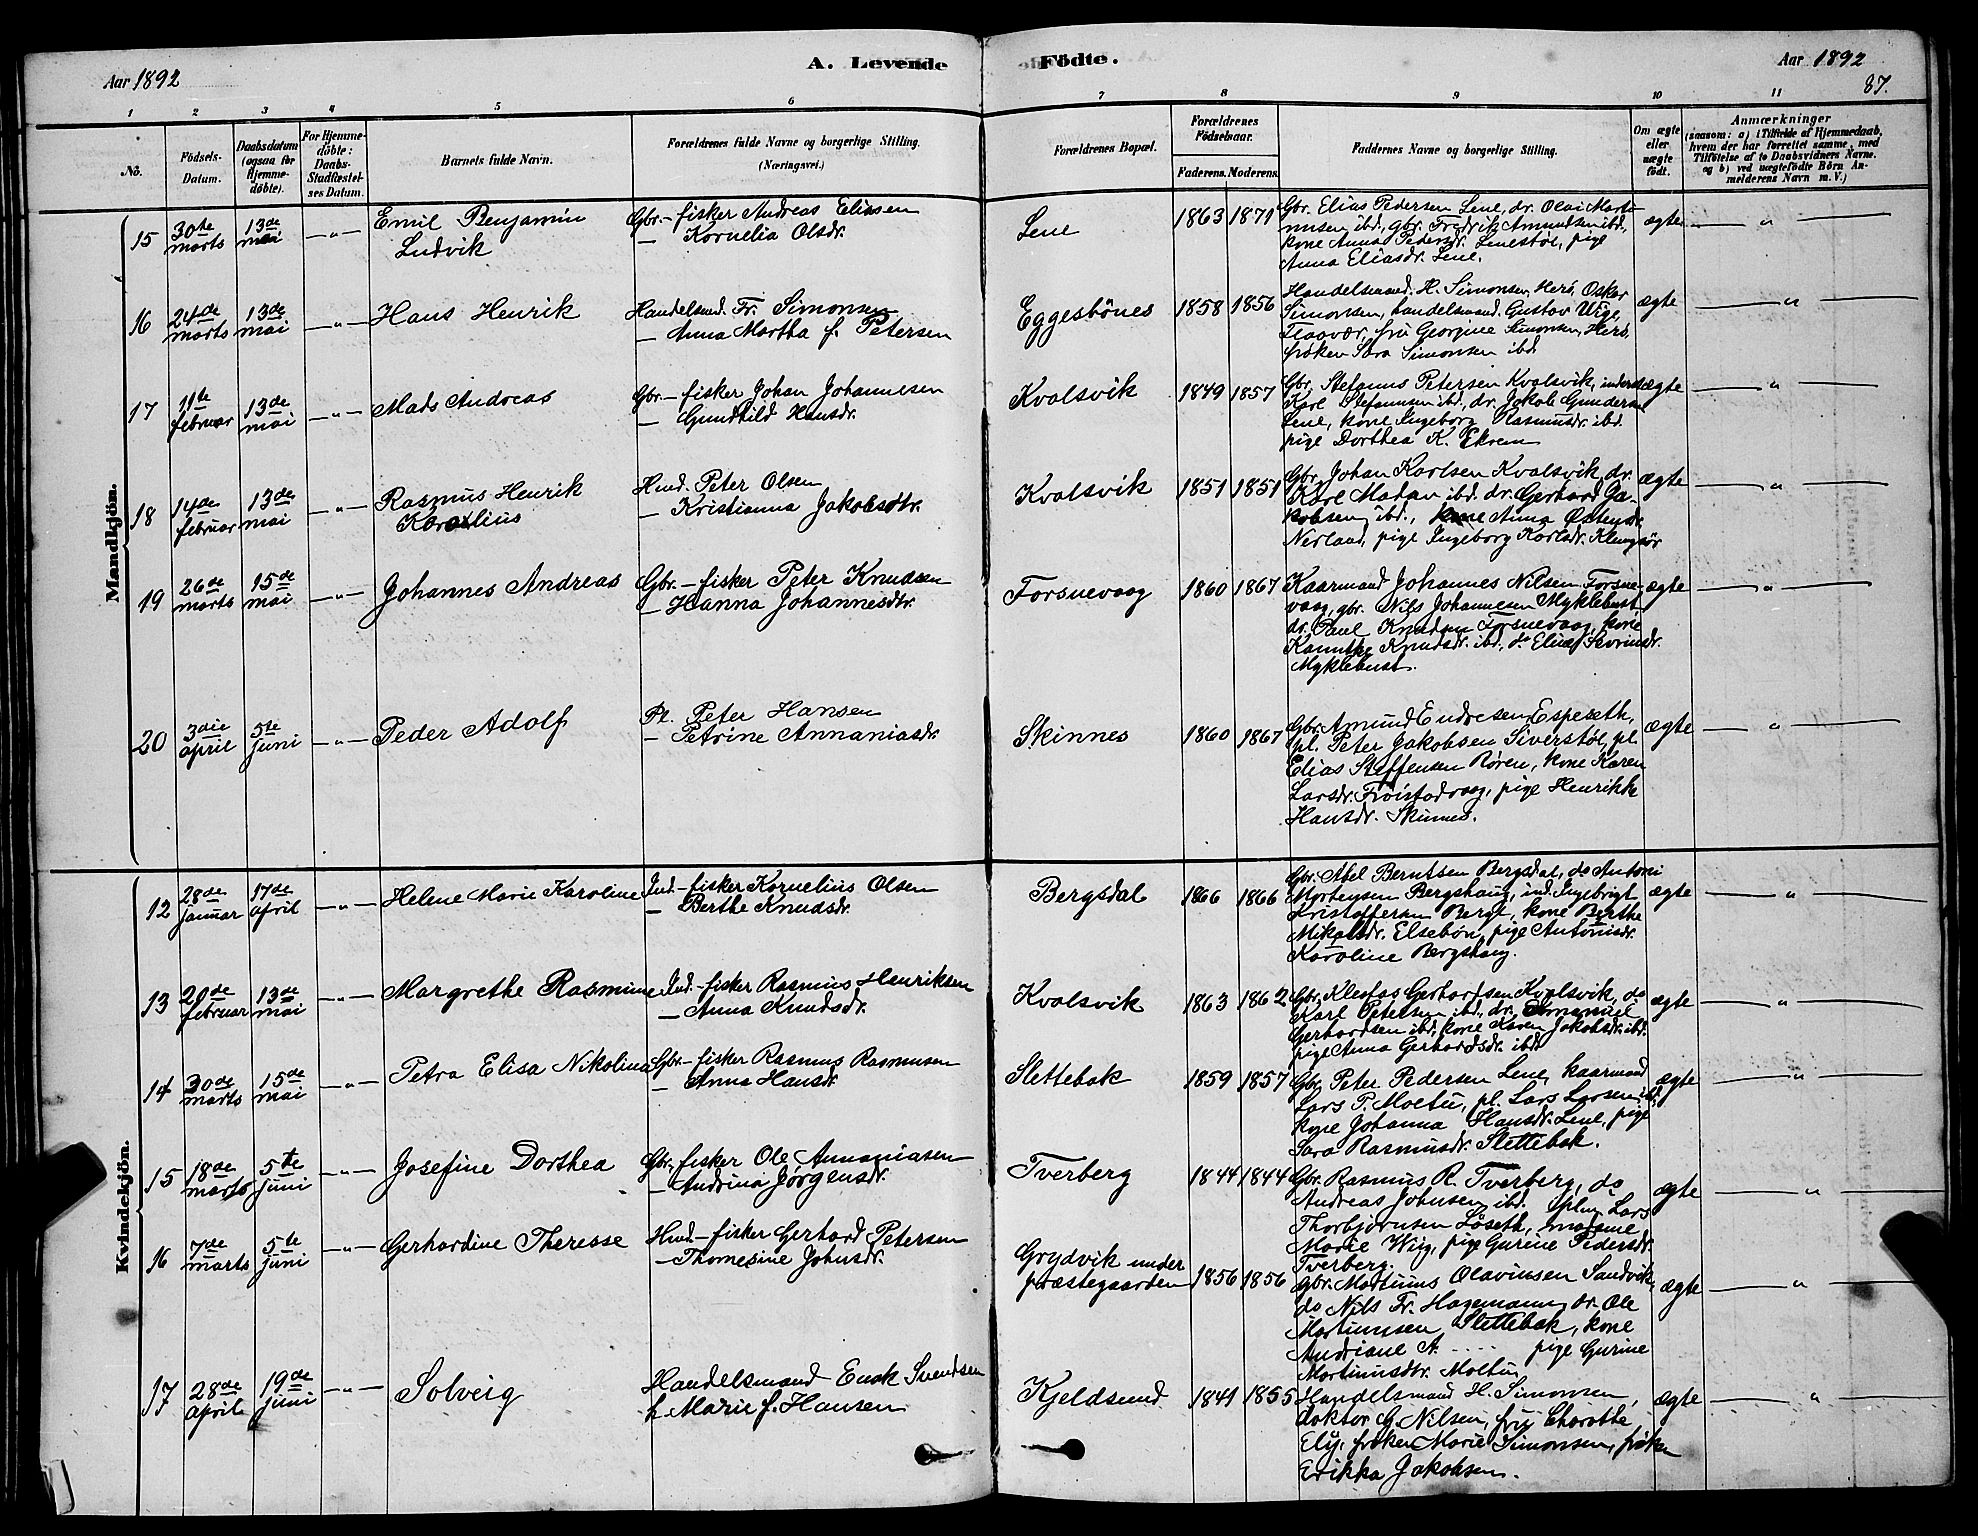 Aar 1892
A. Levende
Födte.
Aar 1892
87.
1 2 3 4 5 6 7 8 9 10 11
No.
Födsels-
Datum.
Daabsdatum
(ogsaa for
Hjemme-
döbte).
For Hjemme-
döbte:
Daabs-
Stadfæstel-
ses Datum.
Barnets fulde Navn.
Forældrenes fulde Navne og borgerlige Stilling.
(Næringsvei.)
Forældrenes Bopæl.
Forældrenes
Födselsaar.
Faderens. Moderens.
Faddernes Navne og borgerlige Stilling.
Om ægte
eller
uægte
födt.
Anmærkninger
(saasom: a) i Tilfælde af Hjemmedaab,
hvem der har forrettet samme, med
Tilföielse af to Daabsvidners Navne.
og b) ved uægtefödte Börn An-
melderens Navn m. V.)
Mandkjön.
15 30te marts 13de mai — " — Emil Benjamin
Ludvik
Gbr. - fisker Andreas Eliasen
— Kornelia Olsdr.
Lene 1863 1871
Gbr. Elias Pedersen Lene, dr. Olai Marti-
nusen ibd, gbr. Fredrik Amundsen ibd,
kone Anna Pedersdr. Lenestöl, pige
Anna Eliasdr. Lene.
ægte — " —
16 24de marts 13de mai — " — Hans Henrik
Handelsmd. Fr. Simonsen
— Anna Martha f. Petersen
Eggesbönes 1858 1856
Handelsmand. H. Simonsen, Herö, Oskar
Simonsen, handelsmand. Gustav Wige,
Flaavær, fru Georgine Simonsen, Herö,
fröken Sara Simonsen ibd.
ægte — " —
17 11te februar 13de mai — " — Mads Andreas
Gbr. - fisker Johan Johannesen
— Gundhild Hansdr.
Kvalsvik 1849 1857
Gbr. Stefanus Petersen Kvalsvik,
Karl Stefanusen ibd., dr. Jakob Gundersen
Lene, kone Ingeborg Rasmusdr. ibd.
pige Dorthea K. Ekrem
ægte — " —
18 14de februar 13de mai — " — Rasmus Henrik
Karolius
Hmd. Peter Olsen
— Kristianna Jakobsdtr.
Kvalsvik 1851 1851
Gbr. Johan Karlsen Kvalsvik, dr.
Karl Madsen ibd. dr. Gerhard Ja-
kobsen ibd., kone Anna Östensdr.
Nerland, pige Ingeborg Karlsdr. Klungsör
ægte — " —
19 26de marts 15de mai — " — Johannes Andreas
Gbr. - fisker Peter Knudsen
— Hanna Johannesdtr.
Forsnevaag 1860 1867
Kaarmand Johannes Nilsen Forsne-
vaag, gbr. Nils Johannesen Myklebust
dr. Paul Knudsen Forsnevaag, kone
Knudsdr. ibd., do Elise Sevrinsdr.
Myklebust.
ægte — " —
20 3die april 5te juni — " — Peder Adolf
Pl. Peter Hansen
— Petrine Annaniasdr.
Skinnes 1860 1867
Gbr. Amund Endresen Espeseth,
pl. Peter Jakobsen Siverstöl, pl.
Elias Steffensen Rören, kone Karen
Larsdr. Fröistadvaag, pige Henrikke
Hansdr. Skinnes.
ægte — " —
Kvindekjön.
12 28de januar 17de april — " — Helene Marie Karoline
Ind. - fisker Kornelius Olsen
— Berthe Knudsdr.
Bergsdal 1866 1866
Gbr. Abel Berntsen Bergsdal, do Antoni
Mortensen Bergshaug, ind. Ingebrigt
Kristoffersen Berge, kone Berthe
Mikalsdr. Elsebön, pige Antonisdr.
Karoline Bergshaug.
ægte — " —
13 20de februar 13de mai — " — Margrethe Rasmine
Ind. - fisker Rasmus Henriksen
— Anna Knudsdr.
Kvalsvik 1863 1862
Gbr. Klefas Gerhardsen Kvalsvik, do
Karl Petersen ibd., dr. Emanuel
Gerhardsen ibd, kone Karen Jakobsdr. ibd.
pige Anna Gerhardsdr. ibd
ægte — " —
14 30de marts 15de mai — " — Petra Elisa Nikolina
Gbr. - fisker Rasmus Rasmusen
— Anna Hansdr.
Slettebak 1859 1857
Gbr. Peter Pedersen Lene, kaarmand
Lars P. Moltu, pl. Lars Larsen ibd,
kone Johanna Hansdr. Lene, pige
Sara Rasmusdr. Slettebak.
ægte — " —
15 18de marts 5te juni — " — Josefine Dorthea
Gbr. fisker Ole Annaniasen
— Andrina Jörgensdr.
Tverberg 1844 1844
Gbr. Rasmus R. Tverberg, do
Andreas Johnsen ibd. Lars
Thorbjörnsen Löseth, madame
Marie Wiig, pige Gurine Pedersdr.
Tverberg.
ægte — " —
16 7de marts 5te juni — " — Gerhardine Theresse
Hmd. - fisker Gerhard Petersen
— Thomesine Johnsdr.
Grydvik under
præstegaarden 1856 1856
gbr. Martinus Olavinsen Sandvik,
do Nils Fr. Hagemann, dr. Ole
Martinusen Slettebak, kone
Andriane A. .... pige Gurine
Martinusdtr. Moltu.
ægte — " —
17 28de april 19de juni — " — Solveig
Handelsmand Enok Svendsen
h. Marie f. Hansen
Kjeldsund 1841 1855
Handelsmand H. Simonsen,
doktor G. Nilsen, fru Charotte
Ely, fröken Marie Simonsen, fröken
Erikka Jakobsen.
ægte — " —